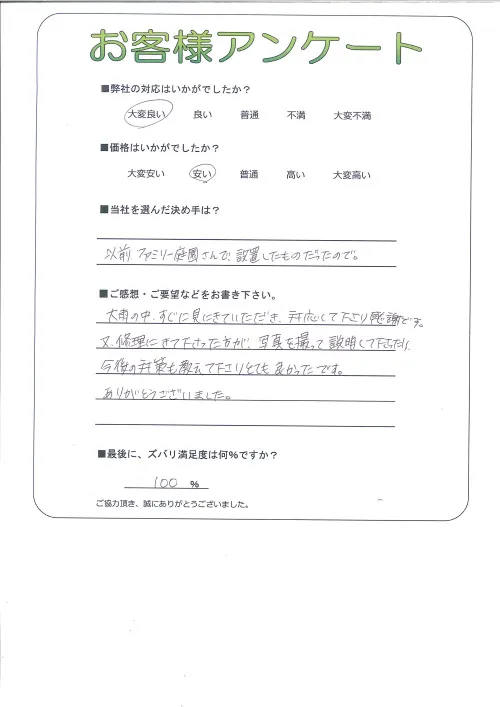 お客様アンケート
■弊社の対応はいかがでしたか？
大変良い 良い 普通 不満 大変不満
■価格はいかがでしたか？
大変安い 安い 普通 高い 大変高い
■当社を選んだ決め手は？
以前 ファミリー庭園さんで、設置したものだったので。
■ご感想・ご要望などをお書き下さい。
大雨の中、すぐに見にきていただき、対応して下さり感謝です。
又、修理にきて下さった方が、写真を撮って説明して下さったり、
今後の対策も教えて下さりとても良かったです。
ありがとうございました。
■最後に、ズバリ満足度は何％ですか？
100 ％
ご協力頂き、誠にありがとうございました。